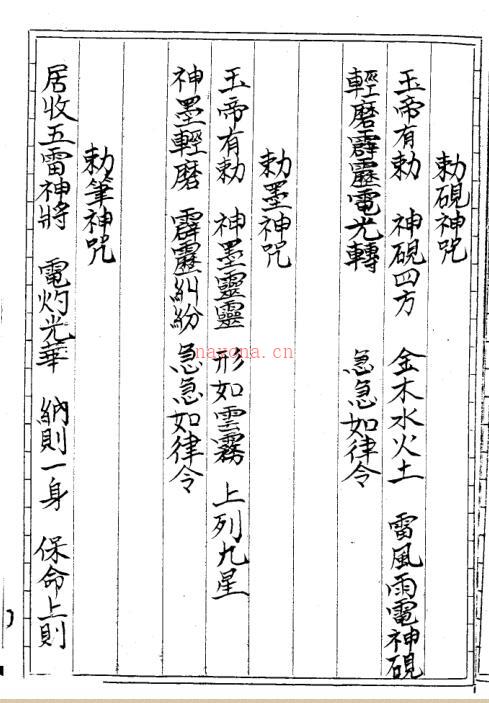 勅硯神咒
玉帝有勅 神硯四方 金木水火土 雷風雨電神硯
輕磨霹靂電光轉 急急如律令
勅墨神咒
玉帝有勅 神墨靈靈 形如雲霧 上列九星
神墨輕磨 霹靂糾紛 急急如律令
勅筆神咒
居收五雷神將 電灼光華 納則一身 保命上則
nayona.cn